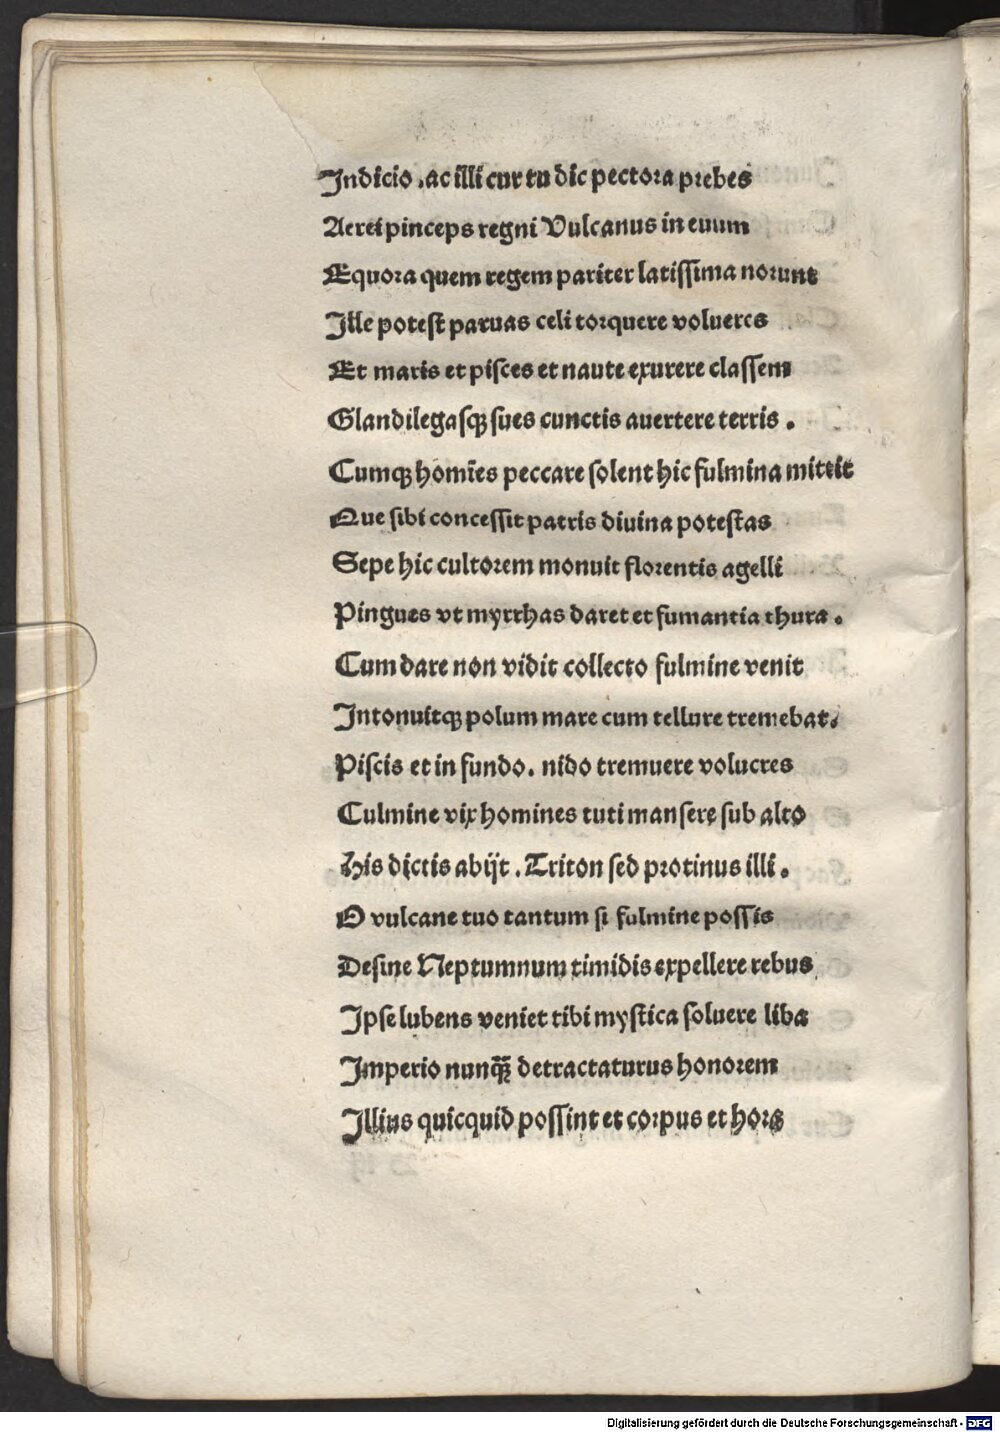 Indicio .ac illi cur tu dic pectora prebes
Aerei pinceps regni Vulcanus in euum
Equora quem regem pariter latissima norunt
Ille potest paruas celi torquere volueres
Et maris et pisces et naute exurere classem
Glandilegasqꝫ sues cunctis auertere terris .
Cumqꝫ homīes peccare solent hic fulmina mittit
Que sibi concessit patris diuina potestas
Sepe hic cultorem monuit florentis agelli
Pingues vt myrrhas daret et fumantia thura .
Cum dare non vidit collecto fulmine venit
Intonuitqꝫ polum mare cum tellure tremebat.
Piscis et in fundo. nido tremuere volucres
Culmine vix homines tuti mansere sub alto
His dictis abijt . Triton sed protinus illi .
O vulcane tuo tantum si fulmine possis
Desine Neptumnum timidis expellere rebus
Ipse lubens veniet tibi mystica soluere liba
Imperio nunqꝫ̄ detractaturus honorem
Illius quicquid possint et corpus et hors
Digitalisierung gefördert durch die Deutsche Forschungsgemeinschaft - DFG